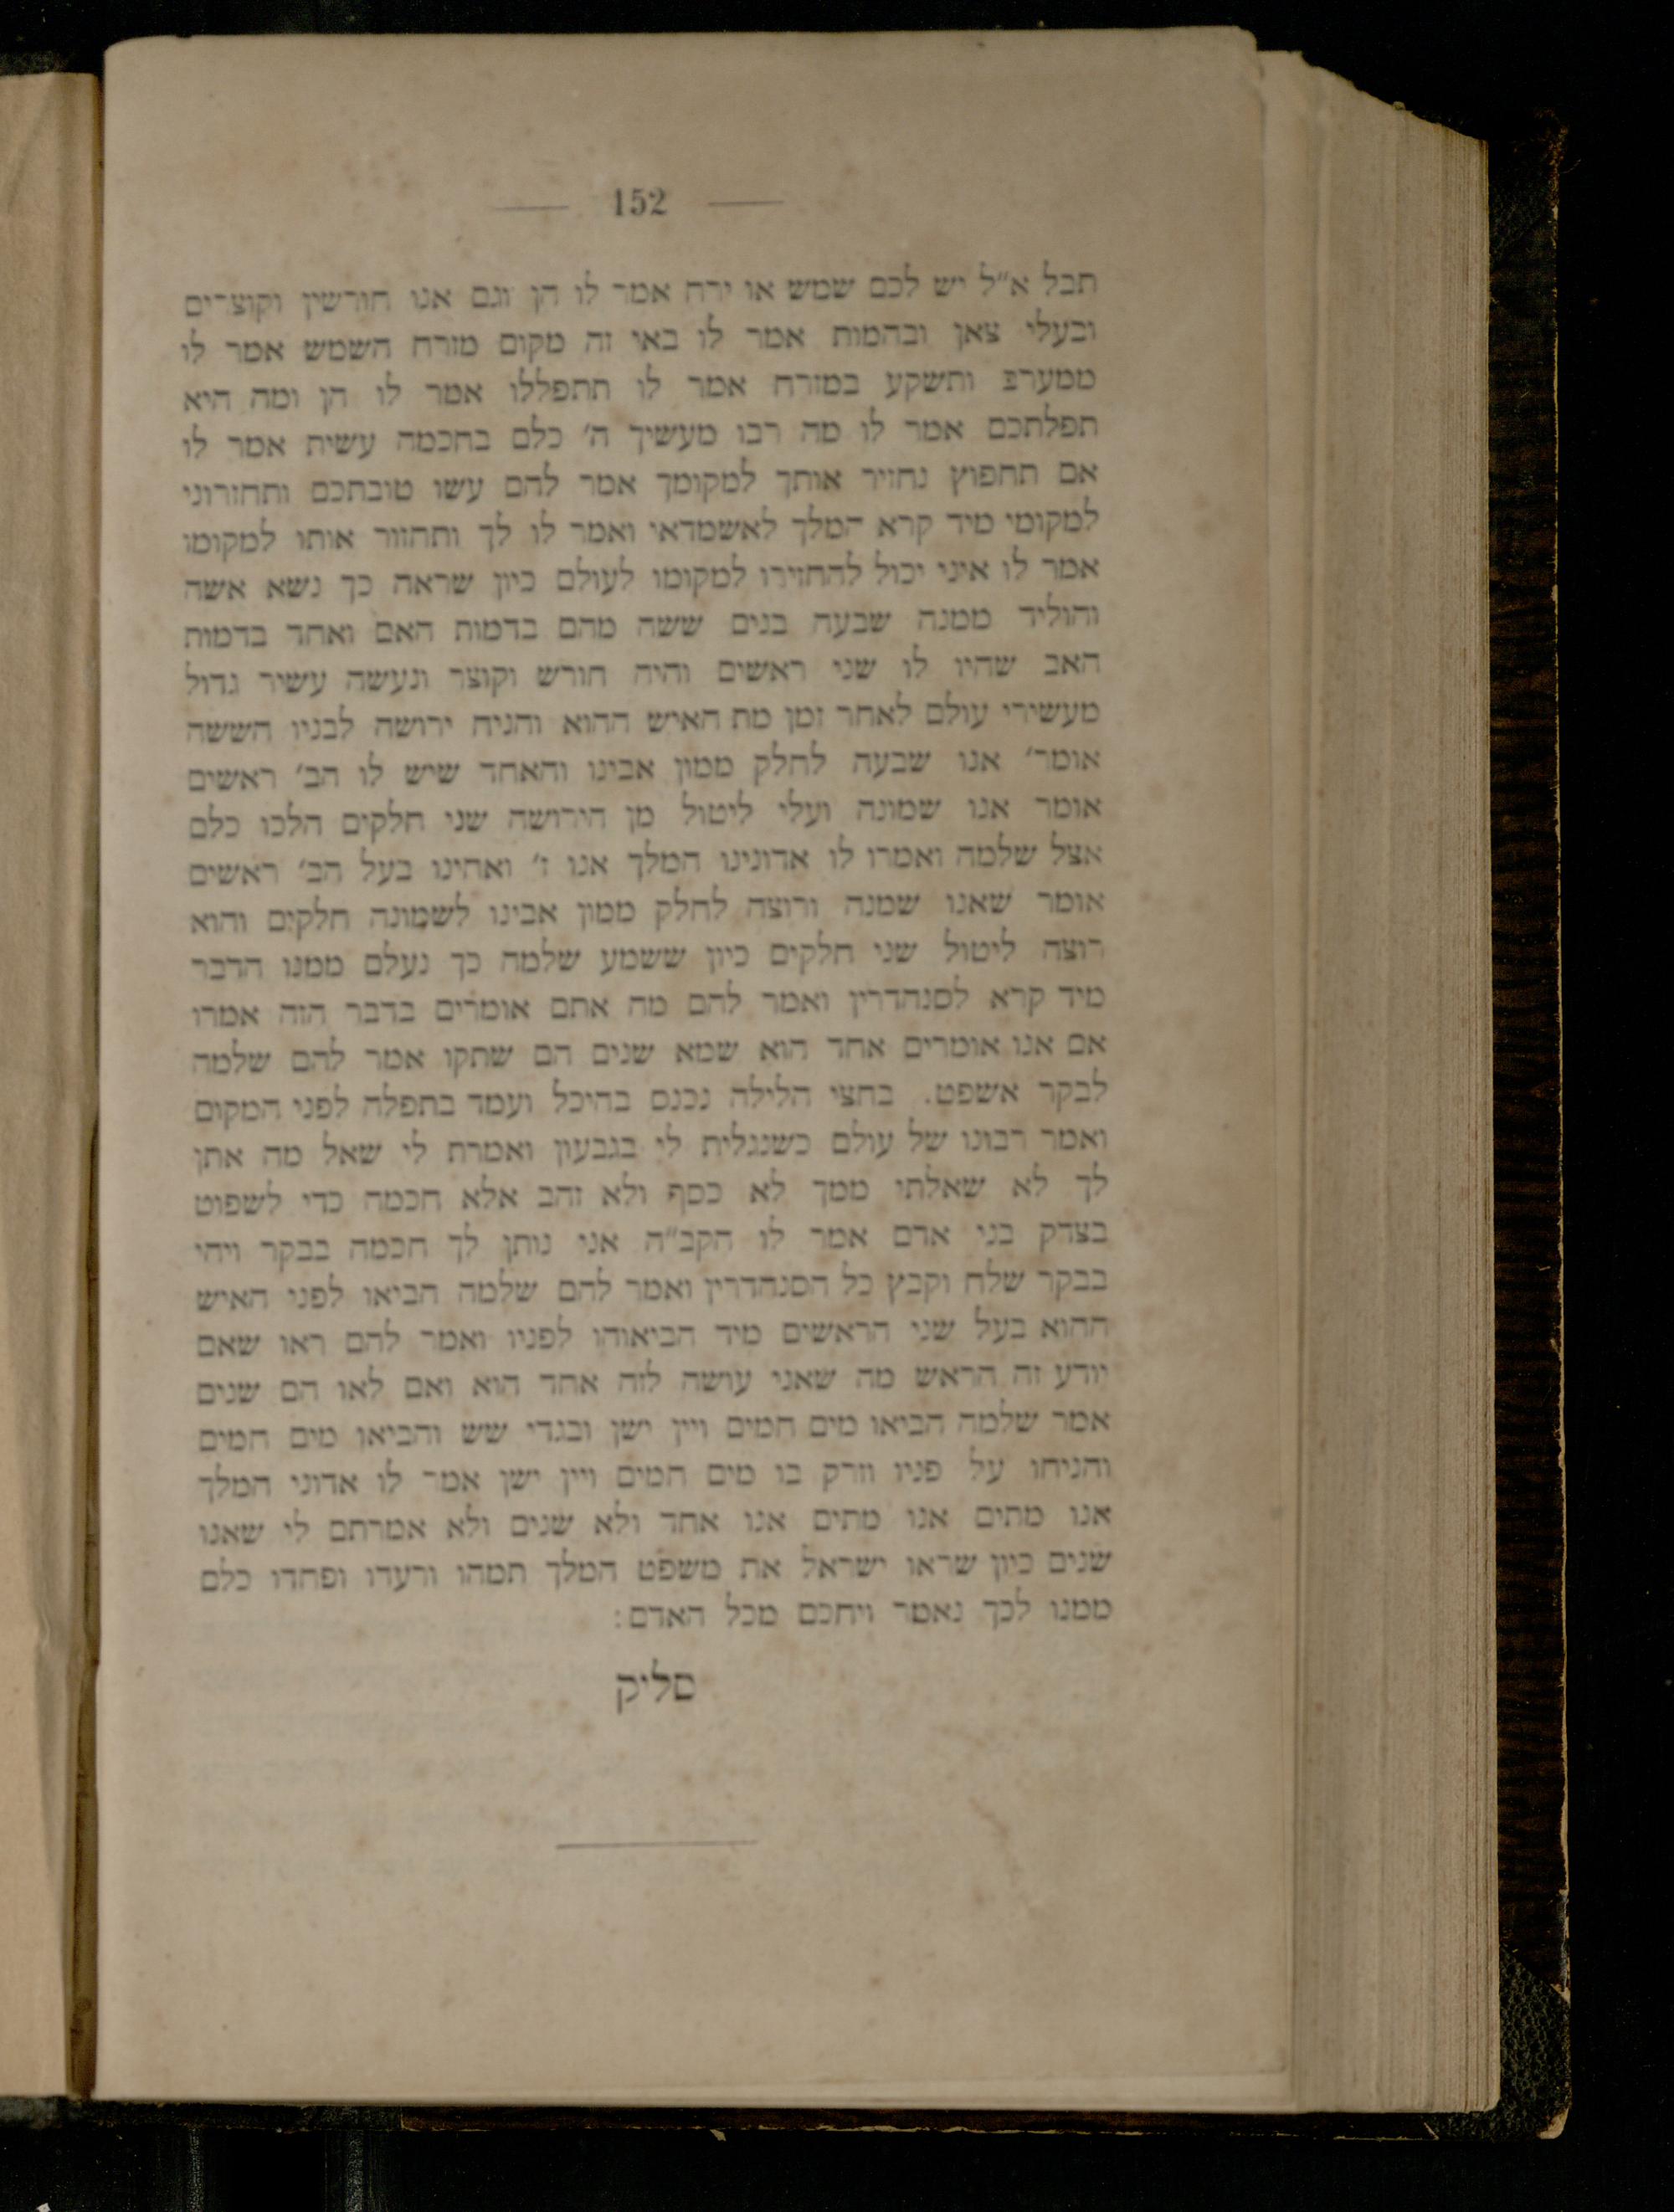 152
תבל א״ל יש לכם שמש או ירח אמר לו הן וגם אנו חורשין וקוצרים
ובעלי צאן ובהמות אמר לו באי זה מקום מזרח השמש אמר לו
ממערב ותשקע במזרח אמר לו תתפללו אמר לו הן ומה היא
תפלתכם אמר לו מה רבו מעשיך ה׳ כלם בחכמה עשית אמר לו
אם תחפוץ נחזיר אותך למקומך אמר להם עשו טובתכם ותחזרוני
למקומי מיד קרא המלך לאשמדאי ואמר לו לך ותחזור אותו למקומו
אמר לו איני יכול להחזירו למקומו לעולם כיון שראה כך נשא אשה
והוליד ממנה שבעה בנים ששה מהם בדמות האם ואחד בדמות
האב שהיו לו שני ראשים והיה חורש וקוצר ונעשה עשיר גדול
מעשירי עולם לאחר זמן מת האיש ההוא והניח ירושה לבניו הששה
אומר׳ אנו שבעה לחלק ממון אבינו והאחד שיש לו הב׳ ראשים
אומר אנו שמונה ועלי ליטול מן הירושה שני חלקים הלכו כלם
אצל שלמה ואמרו לו אדונינו המלך אנו ז׳ ואחינו בעל הב׳ ראשים
אומר שאנו שמנה ורוצה לחלק ממון אבינו לשמונה חלקים והוא
רוצה ליטול שני חלקים כיון ששמע שלמה כך נעלם ממנו הדבר
מיד קרא לסנהדרין ואמר להם מה אתם אומרים בדבר הזה אמרו
אם אנו אומרים אחד הוא שמא שנים הם שתקו אמר להם שלמה
לבקר אשפט. בחצי הלילה נכנס בהיכל ועמד בתפלה לפני המקום
ואמר רבונו של עולם כשנגלית לי בגבעון ואמרת לי שאל מה אתן
לך לא שאלתי ממך לא כסף ולא זהב אלא חכמה כדי לשפוט
בצדק בני אדם אמר לו הקב״ה אני נותן לך חכמה בבקר ויהי
בבקר שלח וקבץ כל הסנהדרין ואמר להם שלמה הביאו לפני האיש
ההוא בעל שני הראשים מיד הביאוהו לפניו ואמר להם ראו שאם
יודע זה הראש מה שאני עושה לזה אחד הוא ואם לאו הם שנים
אמר שלמה הביאו מים חמים ויין ישן ובגדי שש והביאו מים חמים
והניחו על פניו וזרק בו מים חמים ויין ישן אמר לו אדוני המלך
אנו מתים אנו מתים אנו אחד ולא שנים ולא אמרתם לי שאנו
שנים כיון שראו ישראל את משפט המלך תמהו ורעדו ופחדו כלם
ממנו לכך נאמר ויחכם מכל האדם:
סליק